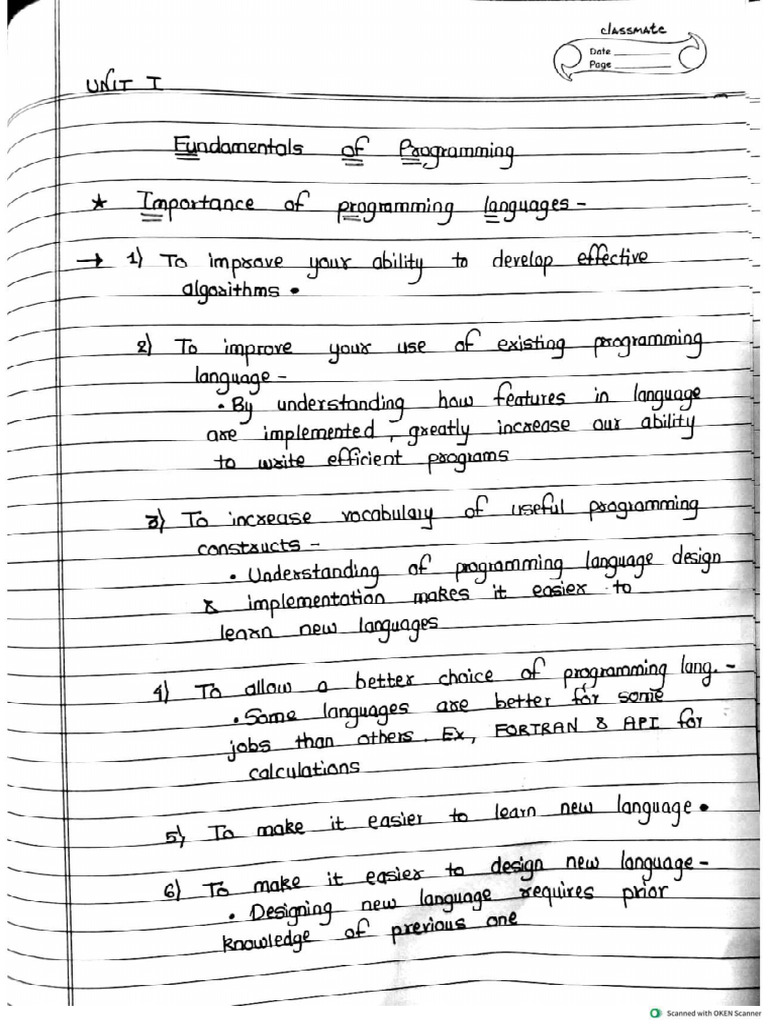 classmate
Date
Page
UNIT I
Fundamentals of Programming
★ Importance of programming languages -
→ 1) To improve your ability to develop effective
algorithms •
2) To improve your use of existing programming
language -
• By understanding how features in language
are implemented, greatly increase our ability
to write efficient programs
3) To increase vocabulary of useful programming
constructs -
• Understanding of programming language design
& implementation makes it easier to
learn new languages
4) To allow a better choice of programming lang. -
• Some languages are better for some
jobs than others. Ex, FORTRAN & API for
calculations
5) To make it easier to learn new language •
6) To make it easier to design new language -
• Designing new language requires prior
knowledge of previous one
Scanned with OKEN Scanner